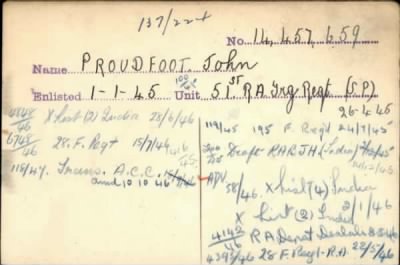 137/224
No. 14,457,659
Name PROUDFOOT. John
Enlisted 1-1-45 Unit 51st R.A Trg Regt (S.P.)
26-4-45
4848/46 X List (2) India 28/6/46
6748/46 28. F. Regt 15/7/46
118/47. Trans. A.C.C.
amd 10 10 46
119/45 195 F. Regt 24/7/45
Draft RARTH (India)
ADV
58/46. X list (4) India
X list (2) India 2/1/46
4142/46 R A Depot Deolali 8 5 46
4393/46 28 F. Regt. R.A 22/5/46